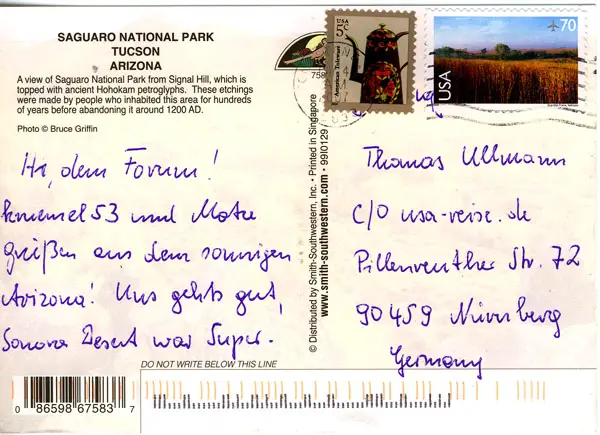 SAGUARO NATIONAL PARK
TUCSON
ARIZONA
A view of Saguaro National Park from Signal Hill, which is
topped with ancient Hohokam petroglyphs. These etchings
were made by people who inhabited this area for hundreds
of years before abandoning it around 1200 AD.
Photo © Bruce Griffin
Hi, dem Forum!
53 und
grüßen aus dem sonnigen
Arizona! Uns gehts gut,
Sonora Desert war Super.
DO NOT WRITE BELOW THIS LINE
0 86598 67583 7
© Distributed by Smith-Southwestern, Inc. • Printed in Singapore
www.smith-southwestern.com • 99I0129
USA
5c
American Toleware
70
USA
Thomas Ullmann
C/O usa-reise.de
Pillenreuther Str. 72
90459 Nürnberg
Germany